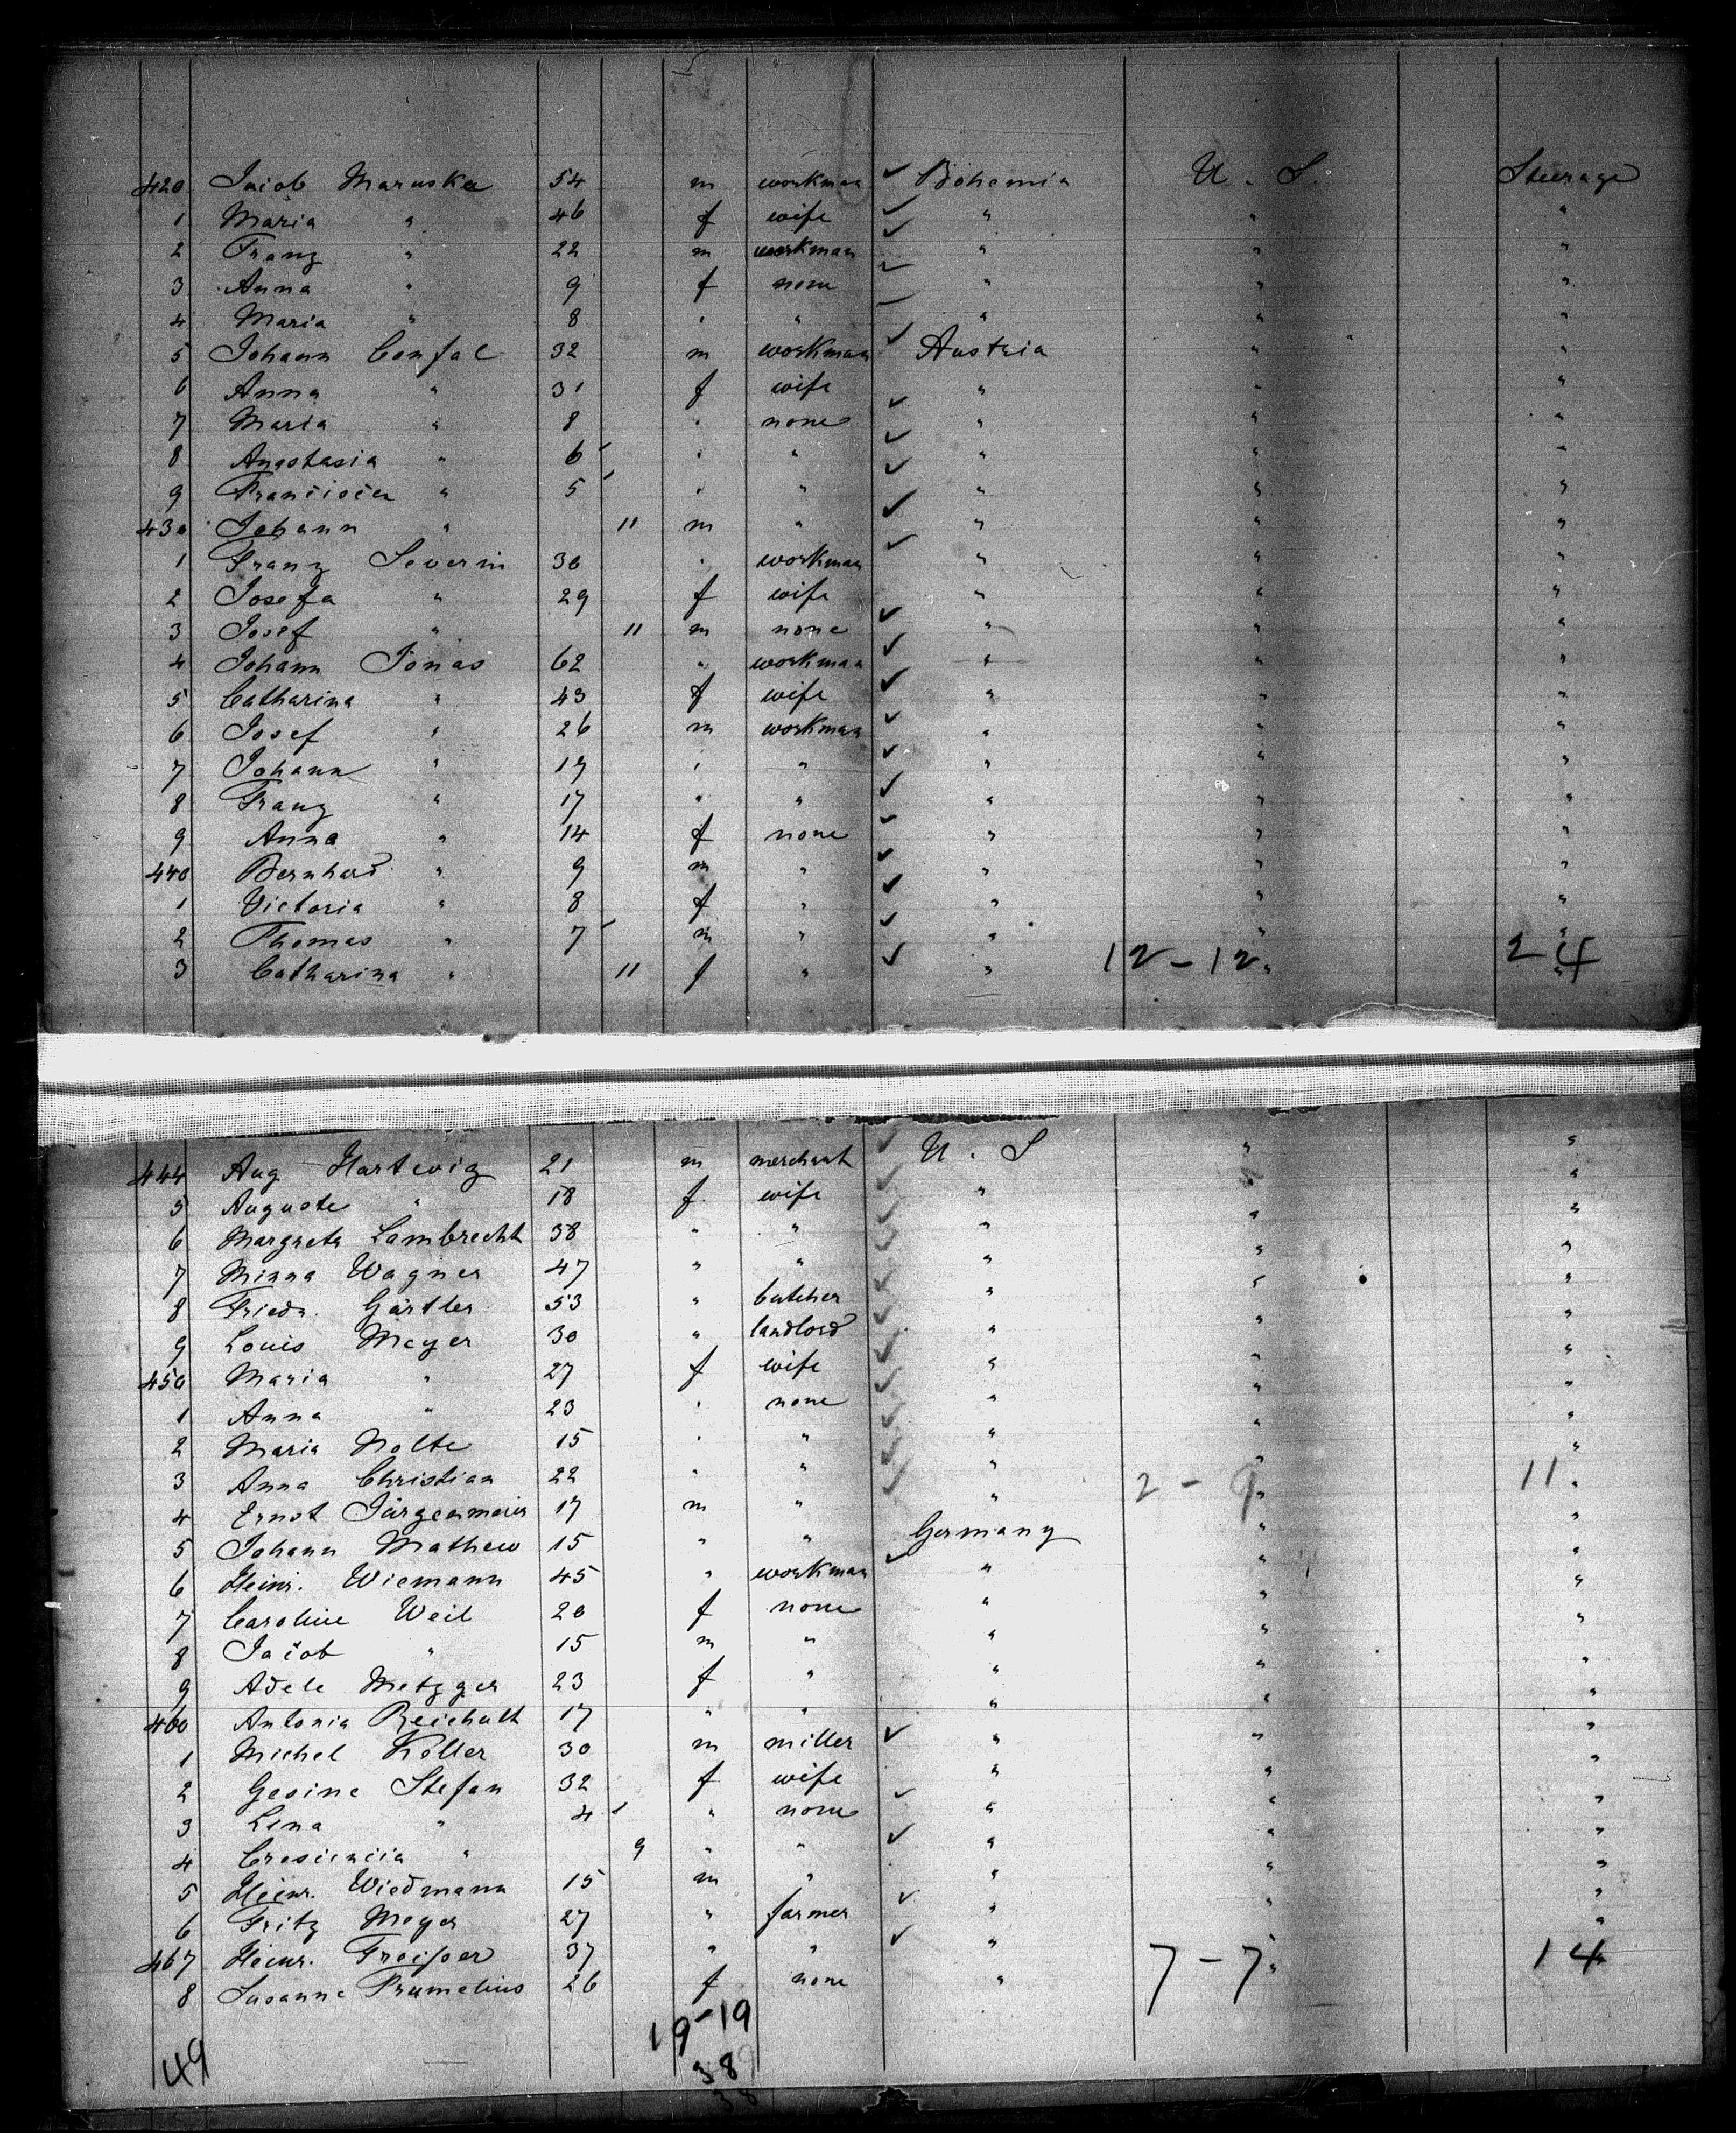 420 Jacob Maruska 54 m workman ✓ Bohemia U. S. Steerage
1 Maria " 46 f wife ✓ " " "
2 Franz " 22 m workman ✓ " " "
3 Anna " 9 f none ✓ " " "
4 Maria " 8 " " ✓ " " "
5 Johann Confal 32 m workman ✓ Austria " "
6 Anna " 31 f wife " " "
7 Maria " 8 " none ✓ " " "
8 Anastasia " 6 " " ✓ " " "
9 Francisca " 5 " " ✓ " " "
430 Johann " 11 m " ✓ " " "
1 Franz Severin 30 " workman ✓ " " "
2 Josefa " 29 f wife " " "
3 Josef " 11 m none ✓ " " "
4 Johann Jonas 62 " workman ✓ " " "
5 Catharina " 43 f wife ✓ " " "
6 Josef " 26 m workman ✓ " " "
7 Johann " 19 " " ✓ " " "
8 Franz " 17 " " ✓ " " "
9 Anna " 14 f none ✓ " " "
440 Bernhard " 9 m " ✓ " " "
1 Victoria " 8 f " ✓ " " "
2 Thomas " 7 m " ✓ " " "
3 Catharina " 11 f " ✓ " 12-12 " 24 "
444 Aug Hartwig 21 m merchant ✓ U. S " "
5 Auguste " 18 f. wife ✓ " " "
6 Margreta Lambrecht 38 " " ✓ " " "
7 Minna Wagner 47 " " ✓ " " "
8 Friedr. Gärtler 53 " butcher ✓ " " "
9 Louis Meyer 30 " landlord ✓ " " "
450 Maria " 27 f wife ✓ " " "
1 Anna " 23 " none ✓ " " "
2 Maria Nolte 15 " " ✓ " " "
3 Anna Christian 22 " " ✓ " " "
4 Ernst Jürgenmeier 17 m " ✓ " 2-9 " 11 "
5 Johann Mathew 15 " " Germany " "
6 Heinr. Wiemann 45 " workman ✓ " " "
7 Caroline Weil 20 f none " " "
8 Jacob " 15 m " " " "
9 Adele Metzger 23 f " " " "
460 Antonia 17 " " " " "
1 Michel Keller 30 m miller ✓ " " "
2 Gesine Stefan 32 f wife " " "
3 Lina " 4 " none ✓ " " "
4 " 9 " " ✓ " " "
5 Heinr. Wiedmann 15 m " " " "
6 Fritz Meyer 27 " farmer ✓ " " "
467 Heinr. 37 " " ✓ " " "
8 Susanne 26 f none " 7-7 " 14 "
19-19
38
38
49